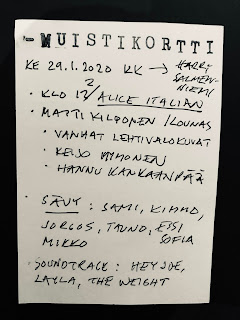 - MUISTIKORTTI
KE 29.1.2020 KK → HARRI
SALMEN-
NIEMI
• KLO 12 / ALICE ITALIAN
• MATTI KILPONEN / LOUNAS
• VANHAT LEHTIVALOKUVAT
• KEIJO
• HANNU KANKAANPÄÄ
• SÄVY : SAMI, KIMMO,
JORGOS, TAUNO, ESSI
MIKKO SOFIA
• SOUNDTRACK : HEY JOE,
LAYLA, THE WEIGHT